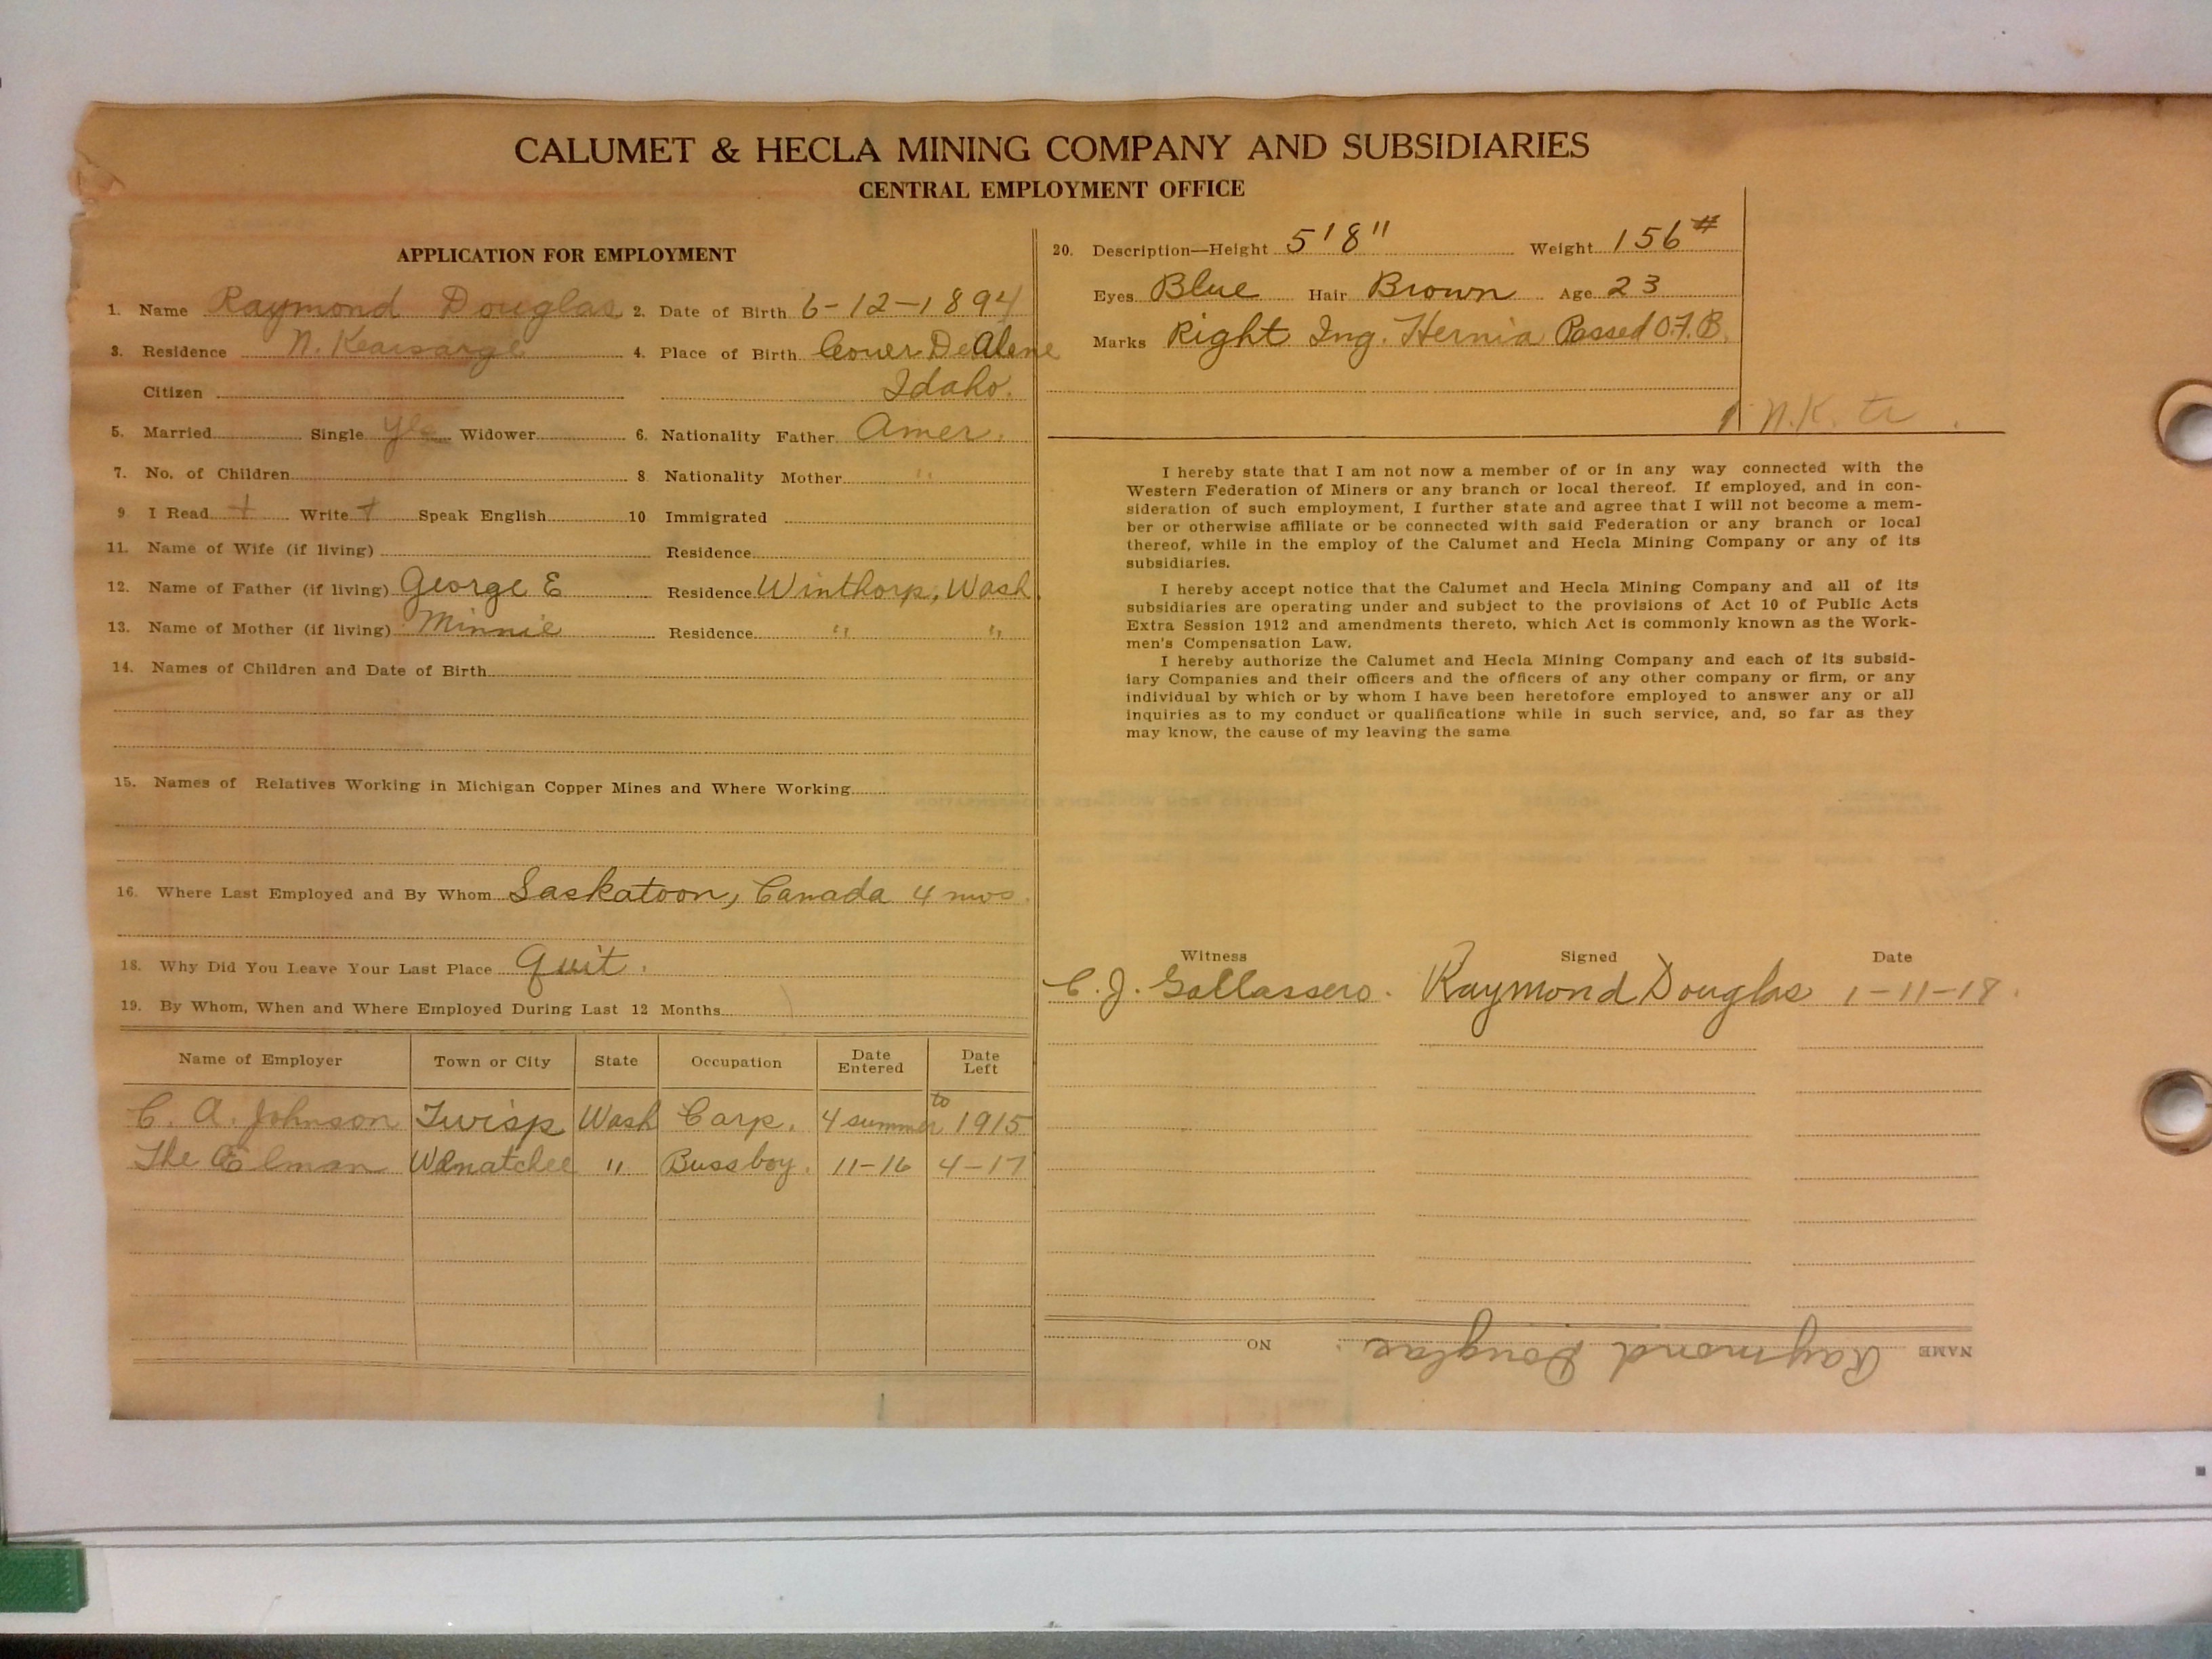 CALUMET & HECLA MINING COMPANY AND SUBSIDIARIES
CENTRAL EMPLOYMENT OFFICE
APPLICATION FOR EMPLOYMENT
1. Name Raymond Douglas 2. Date of Birth 6-12-1894
3. Residence N. Kearsarge 4. Place of Birth Couer De Alene
Citizen Idaho.
5. Married Single yes Widower 6. Nationality Father Amer.
7. No. of Children 8 Nationality Mother "
9 I Read + Write + Speak English 10 Immigrated
11. Name of Wife (if living) Residence
12. Name of Father (if living) George E Residence Winthorp, Wash.
13. Name of Mother (if living) Minnie Residence " "
14. Names of Children and Date of Birth
15. Names of Relatives Working in Michigan Copper Mines and Where Working
16. Where Last Employed and By Whom Saskatoon, Canada 4 mos.
18. Why Did You Leave Your Last Place Quit.
19. By Whom, When and Where Employed During Last 12 Months
Name of Employer Town or City State Occupation Date Entered Date Left
C. A. Johnson Twisp Wash Carp. 4 summer to 1915
The Elman Wenatchee " Bussboy. 11-16 4-17
20. Description—Height 5'8" Weight 156#
Eyes Blue Hair Brown Age 23
Marks Right Ing. Hernia Passed O.F.B.
N.K. tr
I hereby state that I am not now a member of or in any way connected with the
Western Federation of Miners or any branch or local thereof. If employed, and in con-
sideration of such employment, I further state and agree that I will not become a mem-
ber or otherwise affiliate or be connected with said Federation or any branch or local
thereof, while in the employ of the Calumet and Hecla Mining Company or any of its
subsidiaries.
I hereby accept notice that the Calumet and Hecla Mining Company and all of its
subsidiaries are operating under and subject to the provisions of Act 10 of Public Acts
Extra Session 1912 and amendments thereto, which Act is commonly known as the Work-
men's Compensation Law.
I hereby authorize the Calumet and Hecla Mining Company and each of its subsid-
iary Companies and their officers and the officers of any other company or firm, or any
individual by which or by whom I have been heretofore employed to answer any or all
inquiries as to my conduct or qualifications while in such service, and, so far as they
may know, the cause of my leaving the same
Witness Signed Date
C. J. Gallassero. Raymond Douglas 1-11-18.
NAME Raymond Douglas. NO